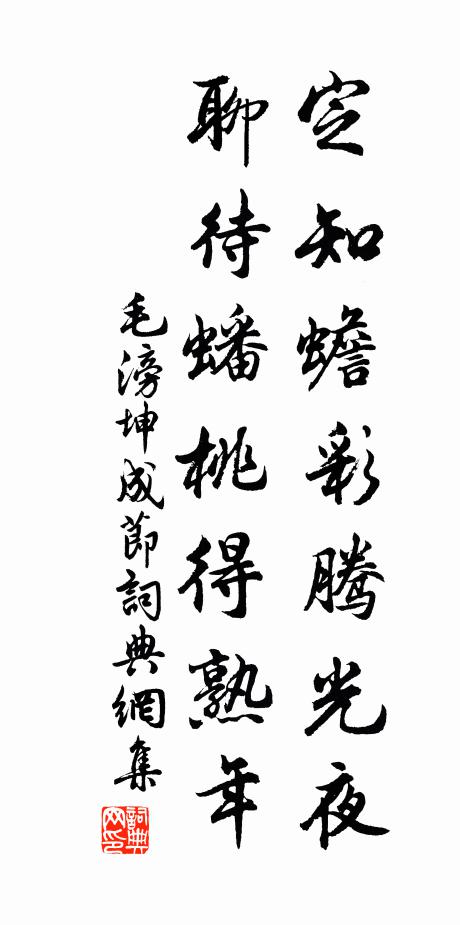 定知蟾彩腾光夜
聊待蟠桃得熟年
毛滂坤成節詞典網集
詞典网印